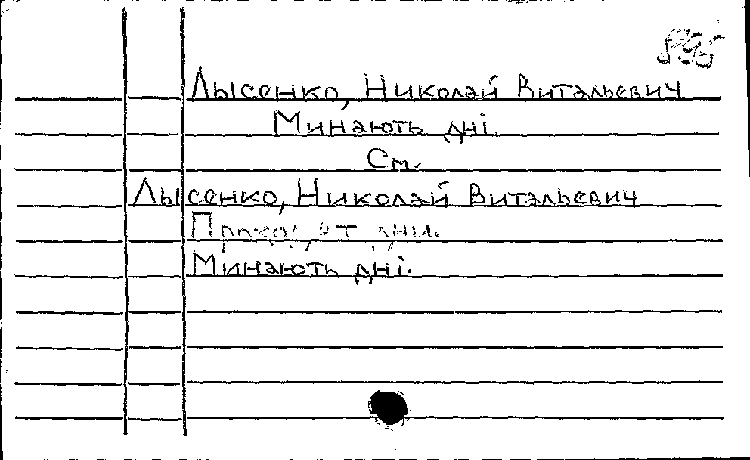 Лысенко, Николай Витальевич
Минають дні.
См.
Лысенко, Николай Витальевич
Проходят дни.
Минають дні.